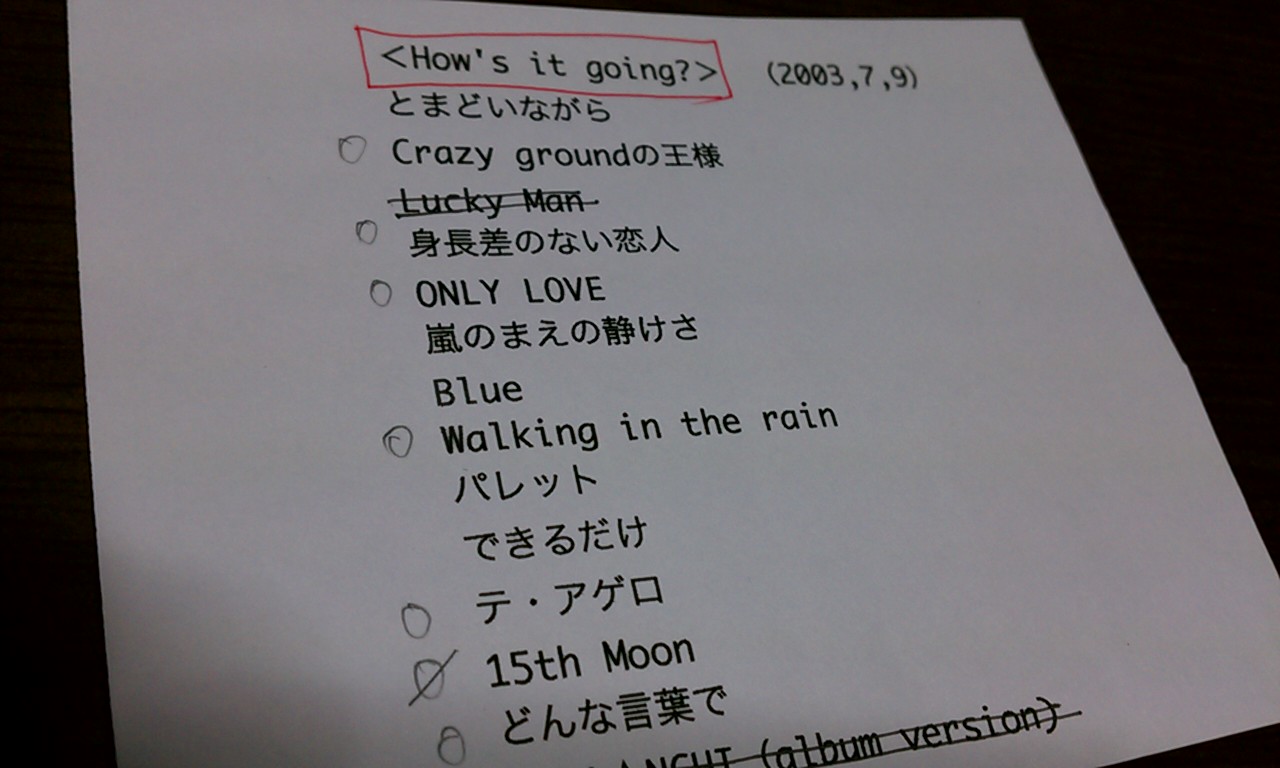 <How's it going?> (2003,7,9)
とまどいながら
Crazy groundの王様
Lucky Man
身長差のない恋人
ONLY LOVE
嵐のまえの静けさ
Blue
Walking in the rain
パレット
できるだけ
テ・アゲロ
15th Moon
どんな言葉で
(album version)